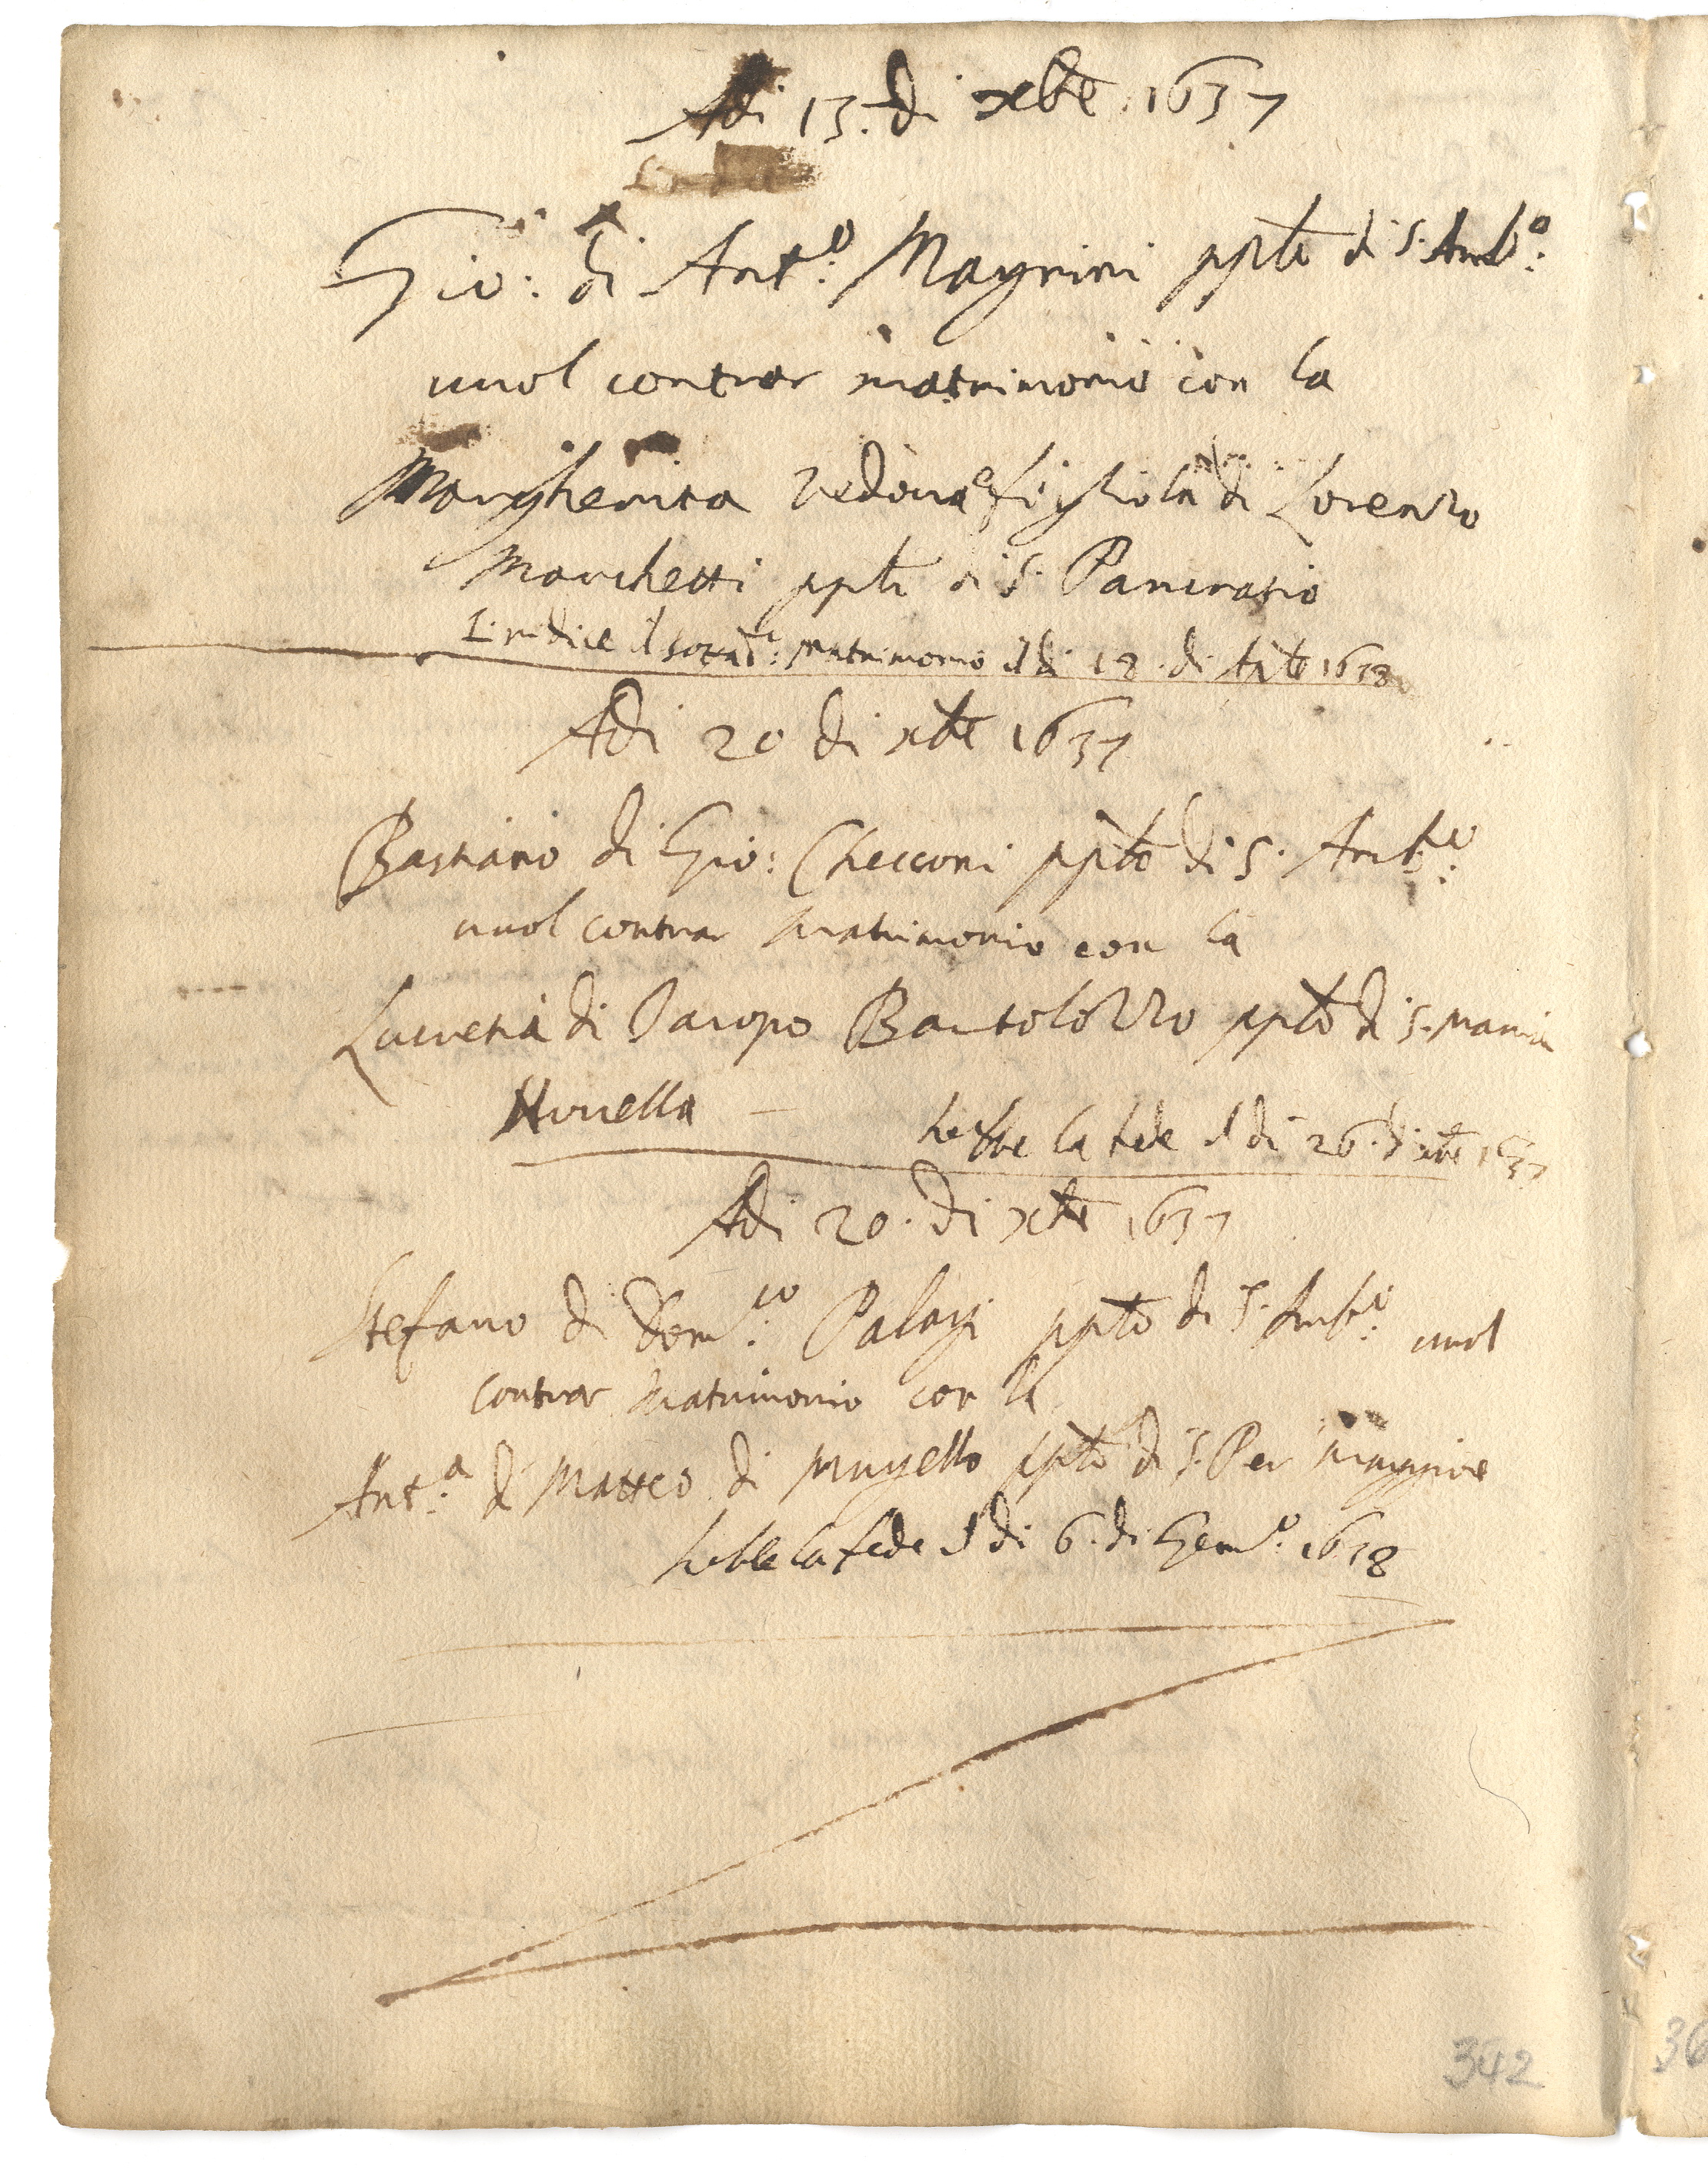 Adi 13. di xbre 1637
Gio: di Ant.o Magnini pplo di S. Amb.o:
vuol contrar matrimonio con la
Margherita vedova e figliola di Lorenzo
Marchetti pplo di S. Pancratio
il matrimonio il di 18. di 1638
Adi 20 di xbre 1637
Bastiano di Gio: Checconi pplo di S. Amb.o:
vuol contrar matrimonio con la
Lucretia di Iacopo Bartolozzo pplo di S. Maria
Novella — hebbe la fede il di 26. di xbre 1637
Adi 20. di xbre 1637
Stefano di Dom.co: Palagi pplo di S. Amb.o: vuol
contrar matrimonio con la
Ant.a: di Matteo di Mugello pplo di S. Pier Maggiore
hebbe la fede il di 6. di Genn.o: 1638
342
36